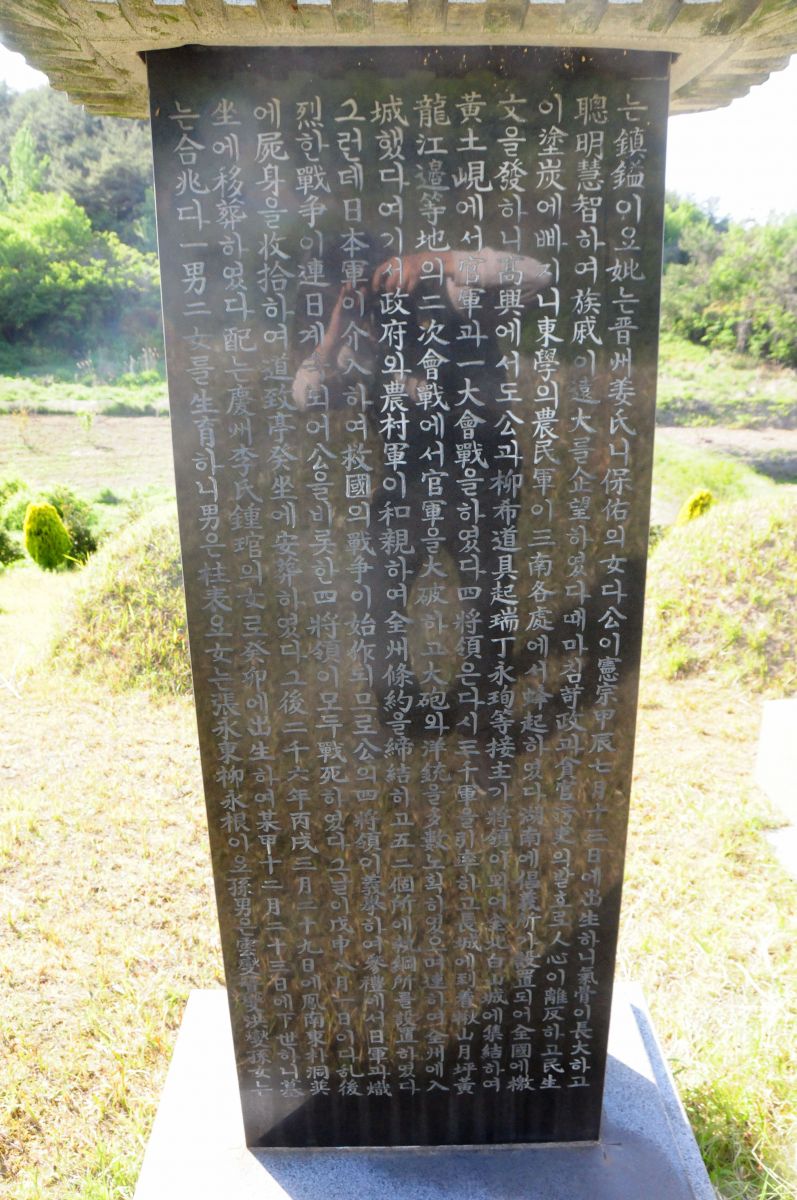 는鎭鎰이오妣는晋州姜氏니保佑의女다公이憲宗甲辰七月十三日에出生하니氣骨이長大하고
聰明慧智하여族戚이遠大를企望하였다때마침苛政과貪官污吏의발호로人心이離反하고民生
이塗炭에빠지니東學의農民軍이三南各處에서蜂起하였다湖南에倡義所가設置되어全國에檄
文을發하니高興에서도公과柳布道具起瑞丁永珣等接主가將領이되어全北白山城에集結하여
黃土峴에서官軍과一大會戰을하였다四將領은다시三千軍을引率하고長城에到着楸山月坪黃
龍江邊等地의二次會戰에서官軍을大破하고大砲와洋銃을多數노획하였으며連하여全州에入
城했다여기서政府와農村軍이和親하여全州條約을締結하고五二個所에執綱所를設置하였다
그런데日本軍이介入하여救國의戰争이始作되므로公의四將領이義擧하여參禮에서日軍과熾
烈한戰争이連日계속되어公을비롯한四將領이모두戰死하였다그날이戊申八月一日이다한後
에屍身을收拾하여道致亭癸坐에安葬하였다그後二千六年丙戌三月二十九日에鳳南東村洞巽
坐에移葬하였다配는慶州李氏鍾琯의女로癸卯에出生하여某甲十二月二十三日에下世하니墓
는合兆다一男二女를生育하니男은柱表오女는張永東柳永根이오孫男은雲燮 燮洪燮孫女는